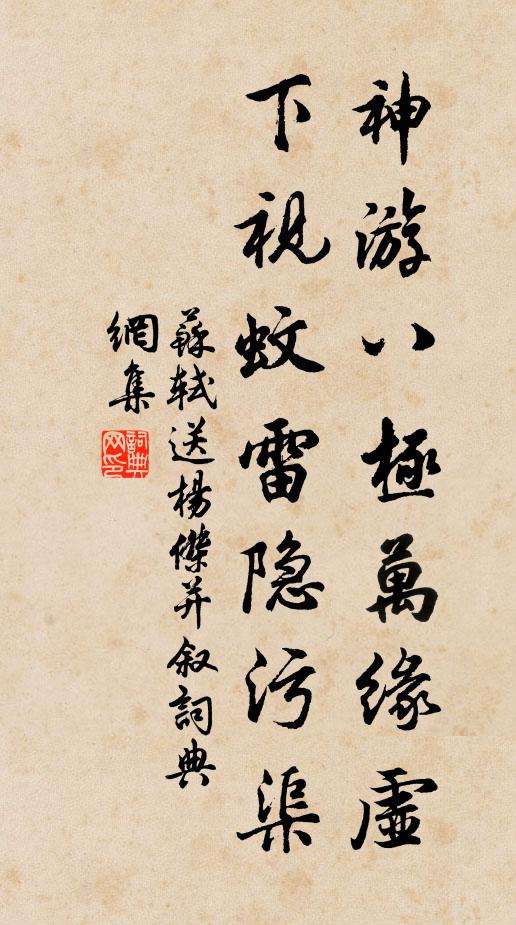 神游八極萬緣虛
下視蚊雷隐污渠
蘇軾送楊傑并叙詞典
網集
詞典网印